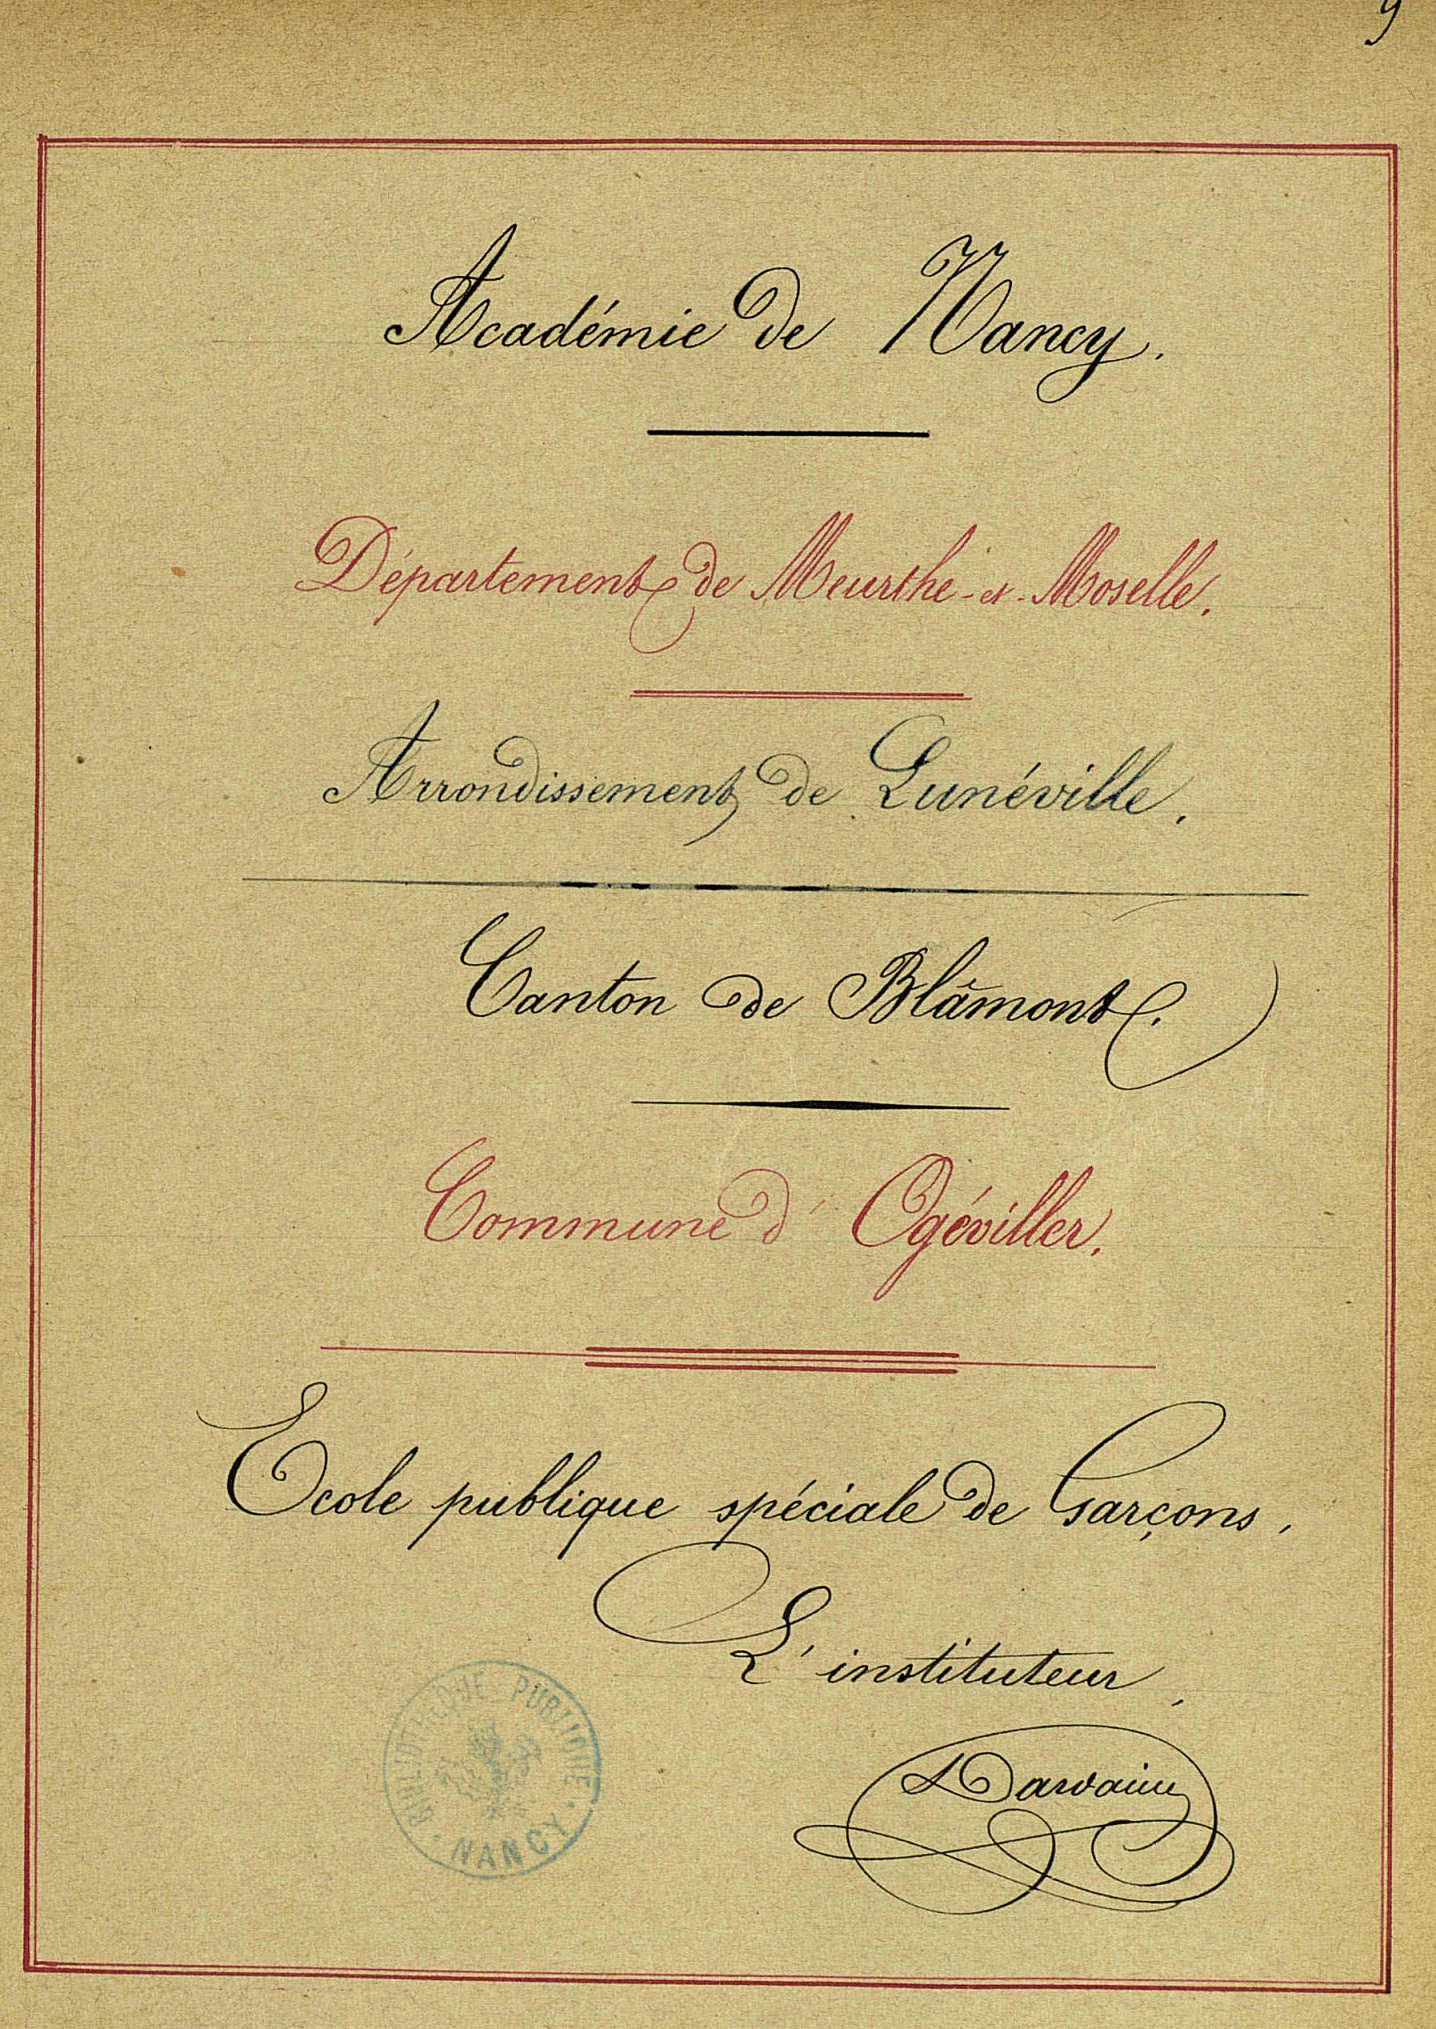 9
Académie de Nancy.
Département de Meurthe-et-Moselle.
Arrondissement de Lunéville.
Canton de Blâmont.
Commune d'Ogéviller.
Ecole publique spéciale de Garçons,
L'instituteur,
BIBLIOTHEQUE PUBLIQUE
NANCY